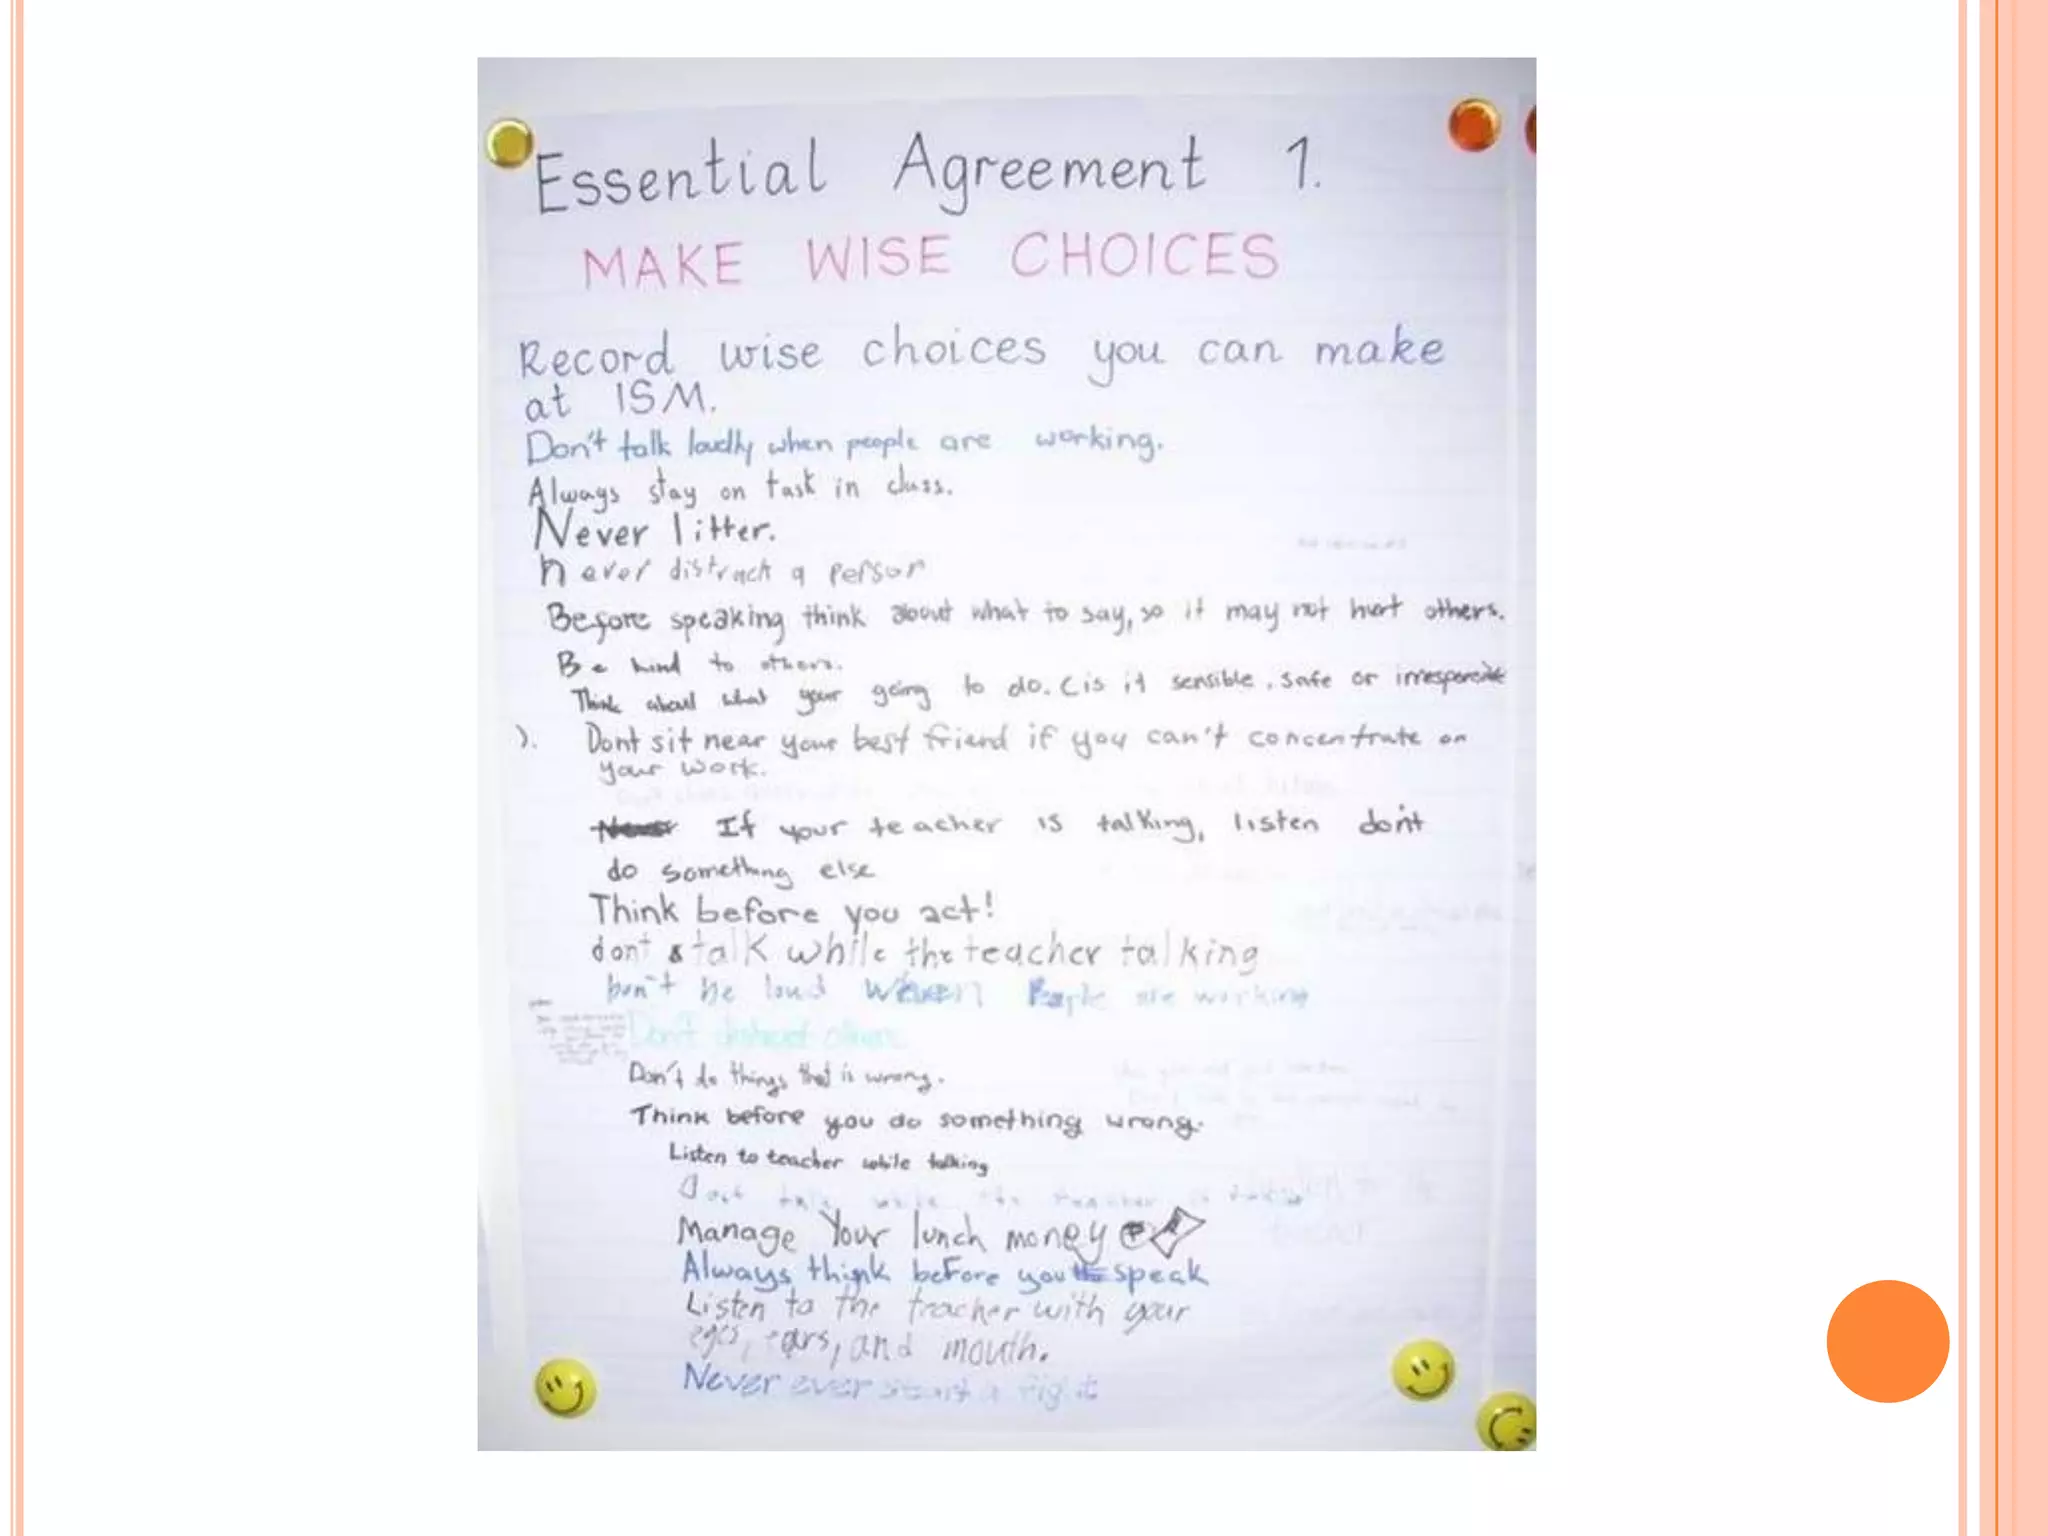 Essential Agreement 1.
MAKE WISE CHOICES
Record wise choices you can make
at ISM.
Don't talk loudly when people are working.
Always stay on task in class.
Never litter.
never distrack a person
Before speaking think about what to say, so it may not hurt others.
Be kind to others.
Think about what your going to do. (is it sensible, safe or
).
Dont sit near your best friend if you can't concentrate on
your work.
If your teacher is talking, listen don't
do something else
Think before you act!
dont talk while the teacher talking
Don't be loud when People are working
Don't distract others
Don't do things that is wrong.
Think before you do something wrong.
Listen to teacher while talking
Dont talk while the teacher is talking
Manage Your lunch money
Always think before you speak
Listen to the teacher with your
eyes, ears, and mouth.
Never ever start a fight